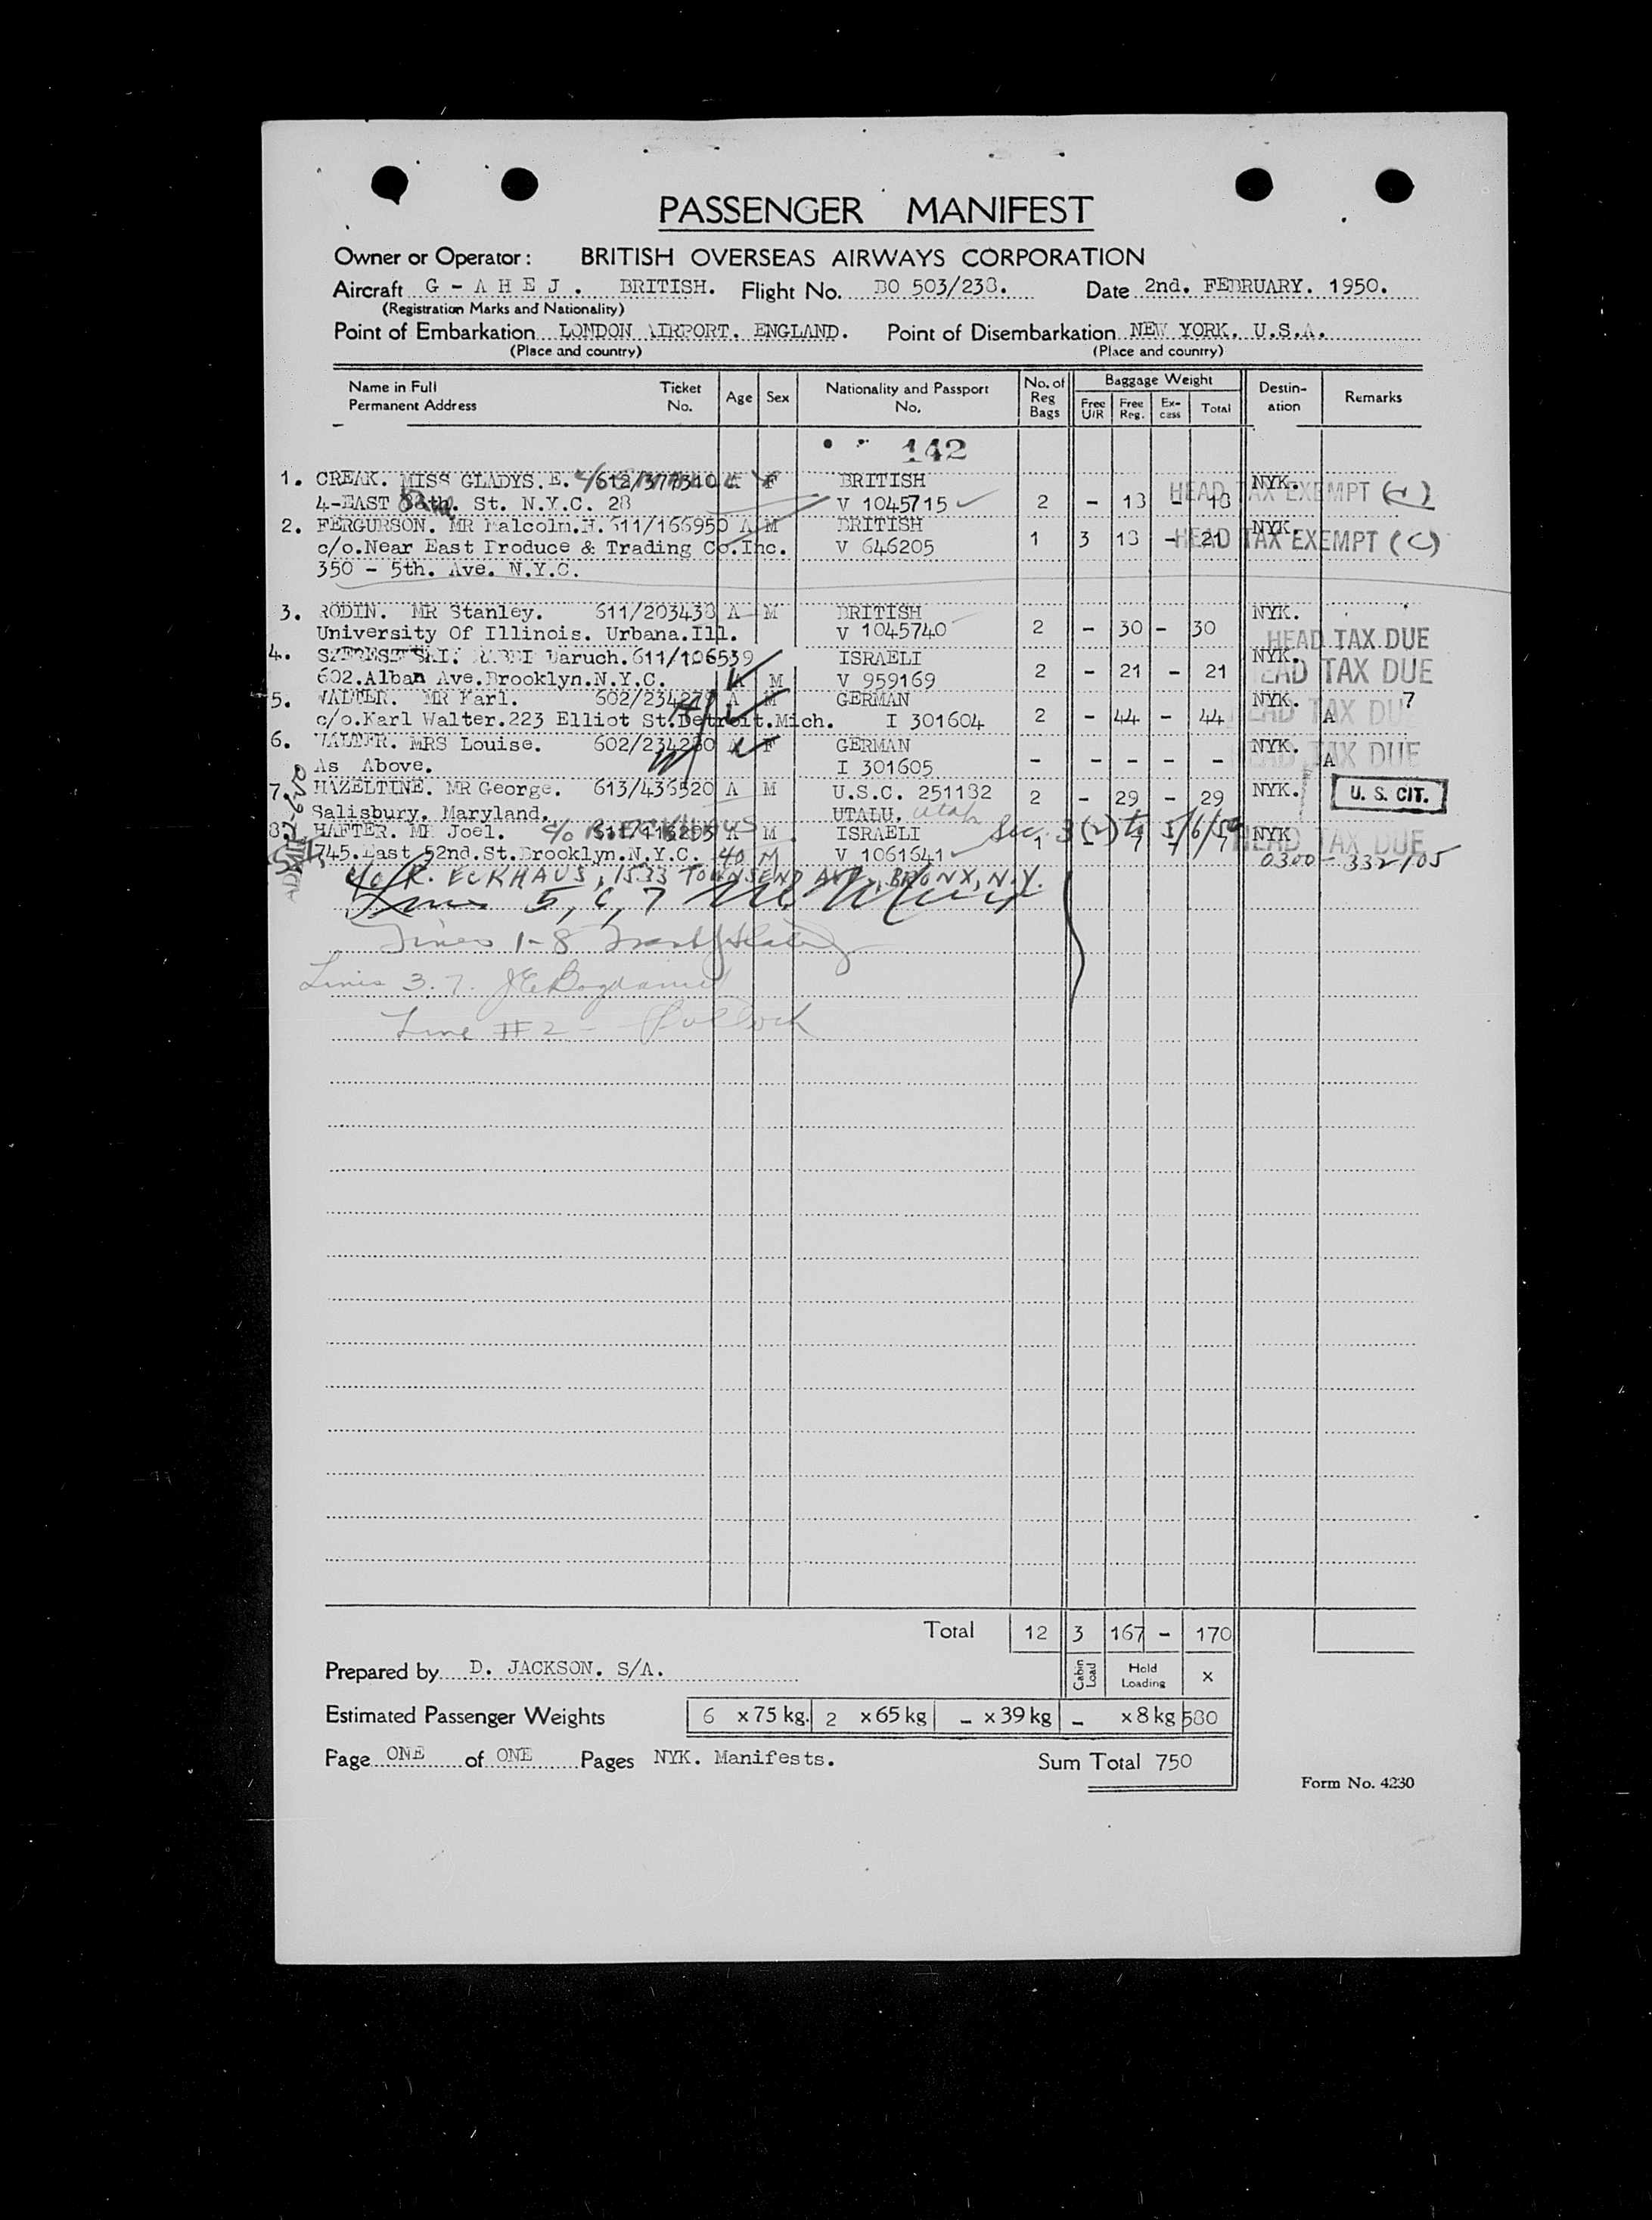 PASSENGER MANIFEST
Owner or Operator: BRITISH OVERSEAS AIRWAYS CORPORATION
Aircraft G - A H E J . BRITISH. Flight No. BO 503/238. Date 2nd. FEBRUARY. 1950.
(Registration Marks and Nationality)
Point of Embarkation LONDON AIRPORT. ENGLAND. Point of Disembarkation NEW YORK. U.S.A.
(Place and country) (Place and country)
Name in Full Permanent Address Ticket No. Age Sex Nationality and Passport No. No. of Reg Bags Baggage Weight Free U/R Free Reg. Ex-cess Total Destin-ation Remarks
142
1. CREAK. MISS GLADYS. E. F BRITISH NYK.
4-EAST St. N.Y.C. 28 V 1045715 2 - 18 - 18 HEAD TAX EXEMPT (C)
2. FERGURSON. MR Malcolm.H. 611/166950 A M BRITISH NYK.
c/o.Near East Produce & Trading Co.Inc. V 646205 1 3 18 - 21 HEAD TAX EXEMPT (C)
350 - 5th. Ave. N.Y.C.
3. RODIN. MR Stanley. 611/203438 A M BRITISH NYK.
University Of Illinois. Urbana.Ill. V 1045740 2 - 30 - 30 HEAD TAX DUE
4. RABBI Baruch. 611/106539 ISRAELI NYK.
602.Alban Ave.Brooklyn.N.Y.C. A M V 959169 2 - 21 - 21 HEAD TAX DUE
5. WALTER. MR Karl. 602/234279 A M GERMAN NYK. 7
c/o.Karl Walter.223 Elliot St.Detroit.Mich. I 301604 2 - 44 - 44 HEAD TAX DUE A
6. WALTER. MRS Louise. 602/234280 A F GERMAN NYK. HEAD TAX DUE
As Above. I 301605 - - - - - A
7. HAZELTINE. MR George. 613/436520 A M U.S.C. 251182 2 - 29 - 29 NYK. U. S. CIT.
Salisbury. Maryland. UTALU. Utah
8. HAFTER. MR Joel. c/o R. ECKHAUS A M ISRAELI Sec. 3(2) to 5/6/50 NYK HEAD TAX DUE
745.East 52nd.St.Brooklyn.N.Y.C. 40 M V 1061641 1 - 7 - 7 0300-332105
c/o R. ECKHAUS, 1533 TOWNSEND AVE., BRONX, N.Y.
Lines 5, 6, 7
Lines 1-8
Lines 3. 7.
Line #2 - Pollock
Total 12 3 167 - 170
Prepared by D. JACKSON. S/A. Cabin Load Hold Loading x
Estimated Passenger Weights 6 x 75 kg. 2 x 65 kg - x 39 kg - x 8 kg 580
Page ONE of ONE Pages NYK. Manifests. Sum Total 750
Form No. 4230